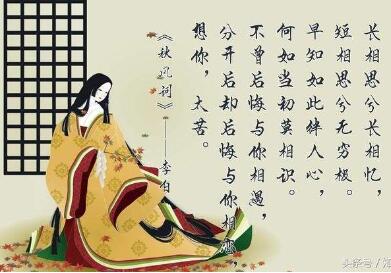 长相思兮长相忆
短相思兮无穷极。
早知如此绊人心,
何如当初莫相识。
不曾后悔与你相遇,
分开后却后悔与你相恋,
想你,太苦。
《秋风词》——李白
头条号 /